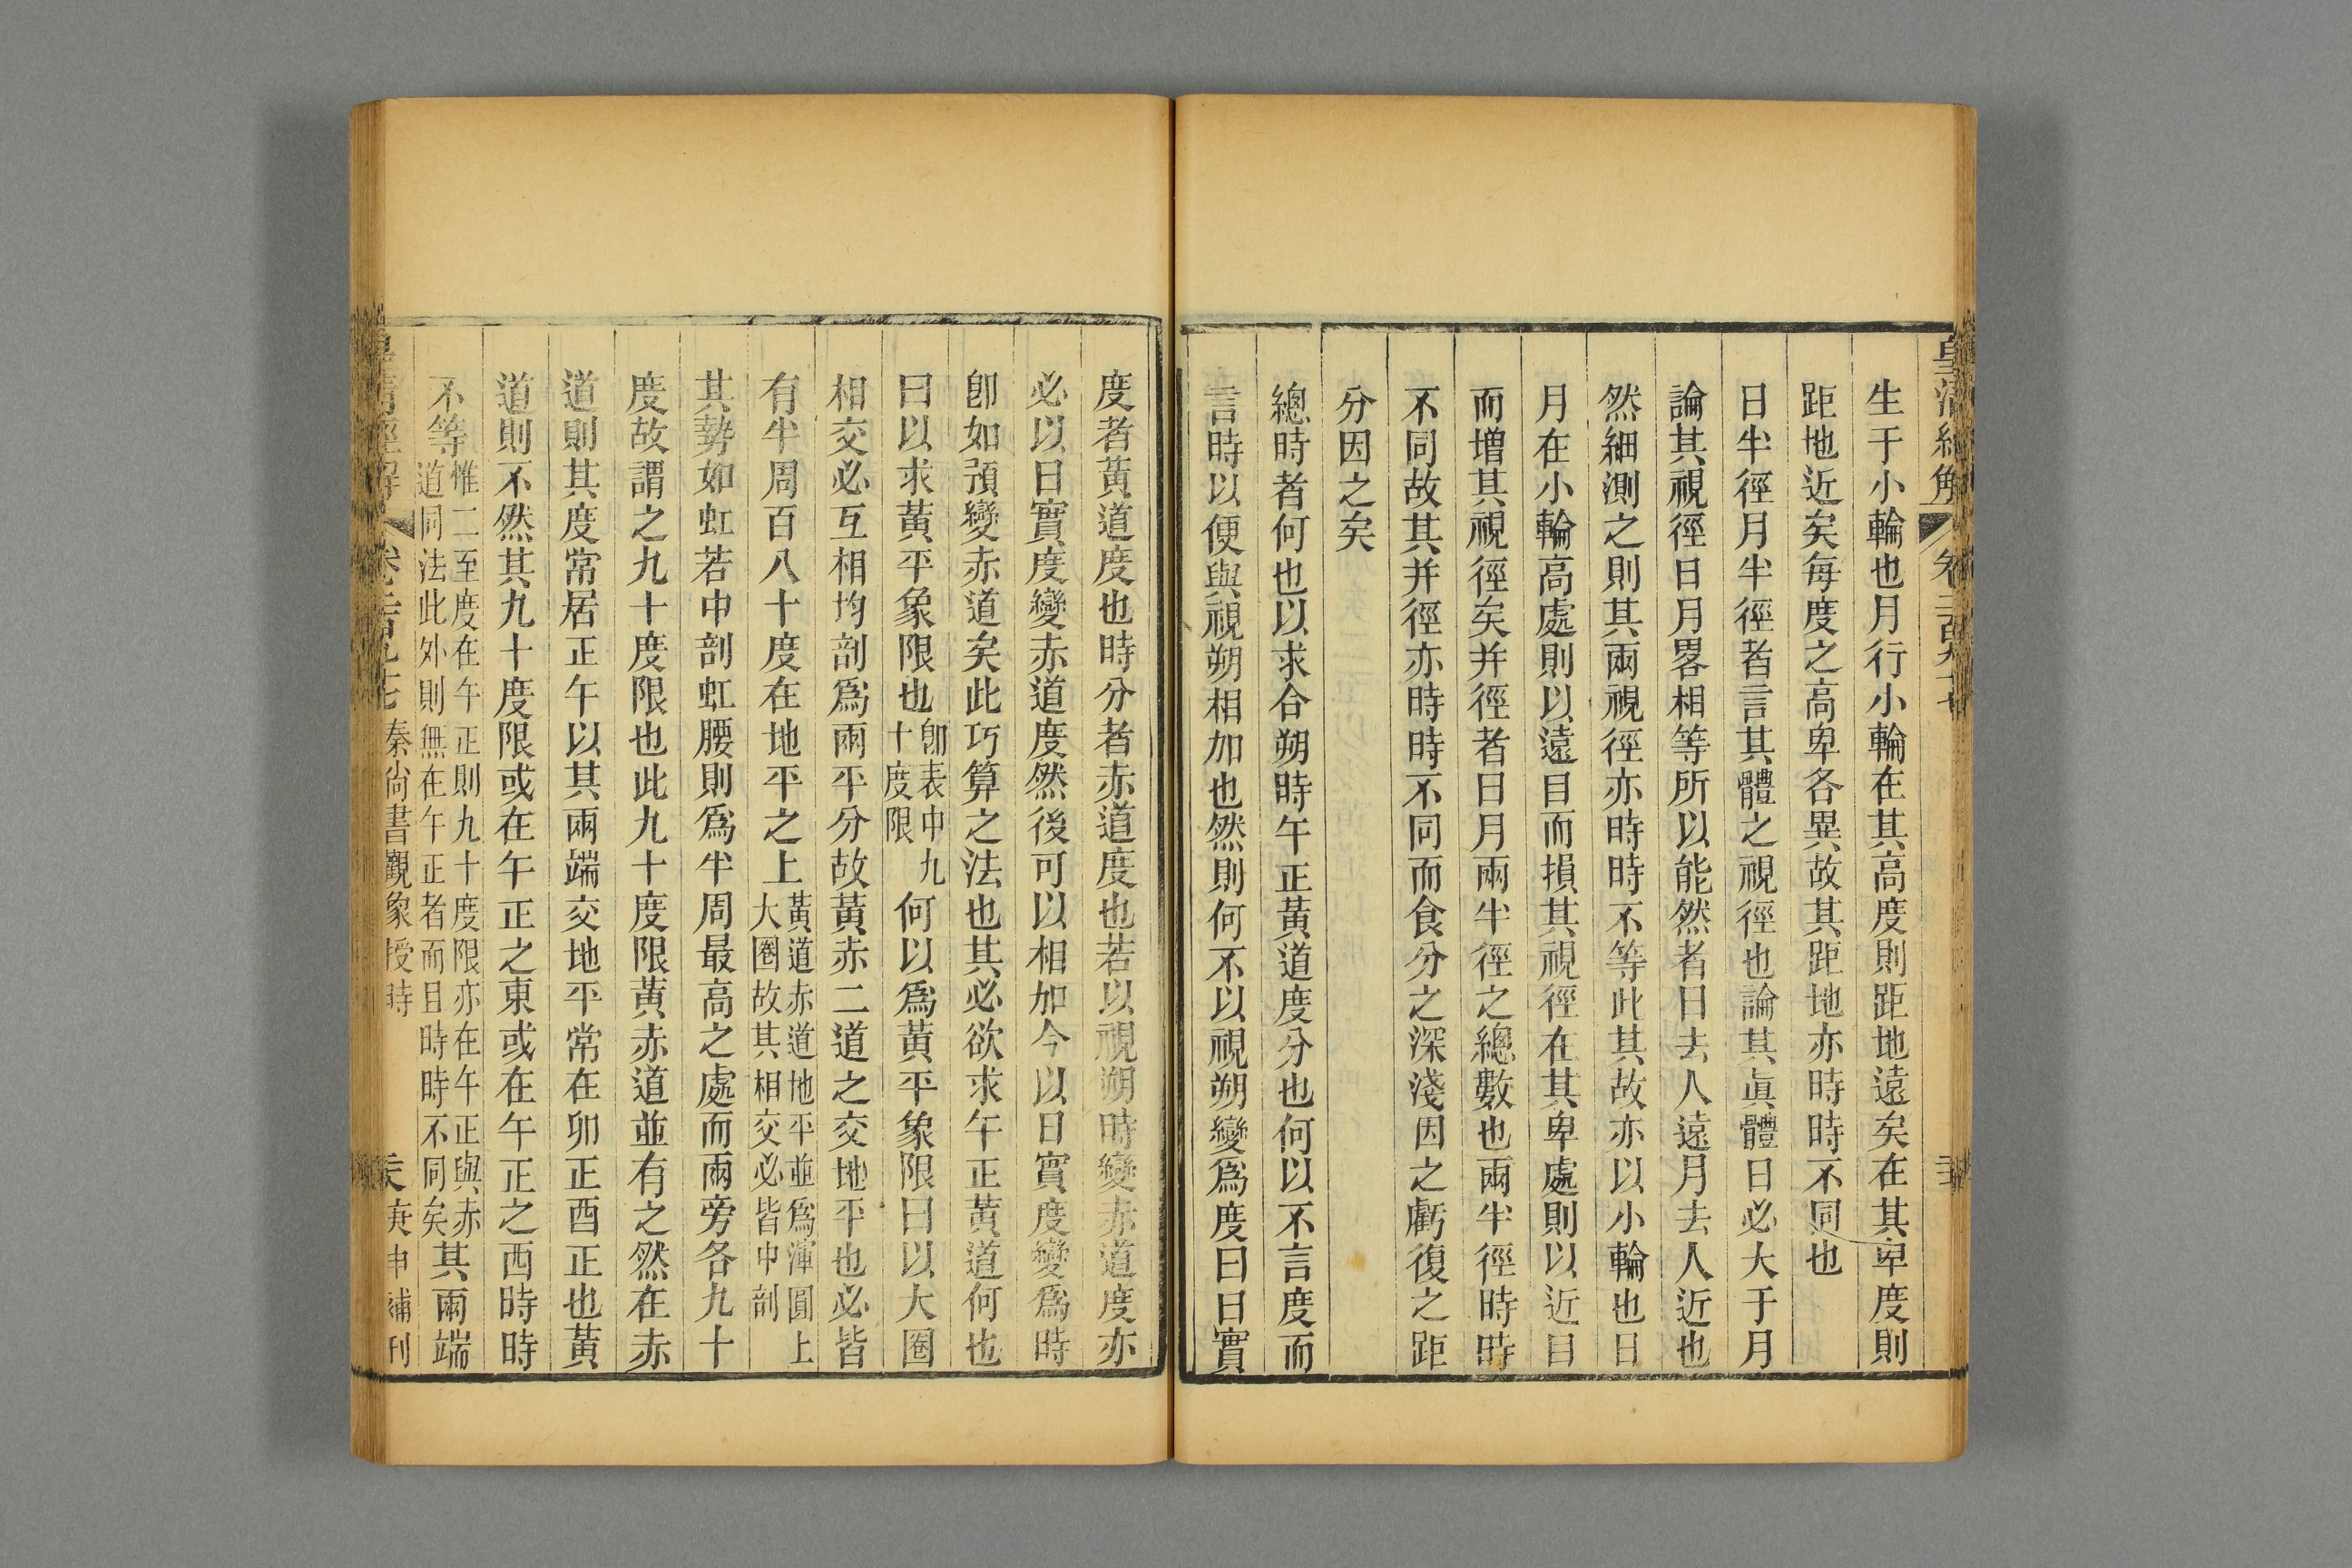 皇清經解
生于小輪也月行小輪在其高度則距地遠矣在其卑度則
距地近矣每度之高卑各異故其距地亦時時不同也
日半徑月半徑者言其體之視徑也論其眞體日必大于月
論其視徑日月畧相等所以能然者日去人遠月去人近也
然細測之則其兩視徑亦時時不等此其故亦以小輪也日
月在小輪高處則以遠目而損其視徑在其卑處則以近目
而增其視徑矣并徑者日月兩半徑之總數也兩半徑時時
不同故其并徑亦時時不同而食分之深淺因之虧復之距
分因之矣
總時者何也以求合朔時午正黃道度分也何以不言度而
言時以便與視朔相加也然則何不以視朔變爲度曰日實
度者黃道度也時分者赤道度也若以視朔時變赤道度亦
必以日實度變赤道度然後可以相加今以日實度變爲時
卽如預變赤道矣此巧算之法也其必欲求午正黃道何也
曰以求黃平象限也
卽表中九
十度限
何以爲黃平象限曰以大圈
相交必互相均剖爲兩平分故黃赤二道之交地平也必皆
有半周百八十度在地平之上
黃道赤道地平並爲渾圓上
大圈故其相交必皆中剖
其勢如虹若中剖虹腰則爲半周最高之處而兩旁各九十
度故謂之九十度限也此九十度限黃赤道並有之然在赤
道則其度常居正午以其兩端交地平常在卯正酉正也黃
道則不然其九十度限或在午正之東或在午正之西時時
不等
惟二至度在午正則九十度限亦在午正與赤
道同法此外則無在午正者而且時時不同矣
其兩端
皇清經解
秦尙書觀象授時
庚申補刊